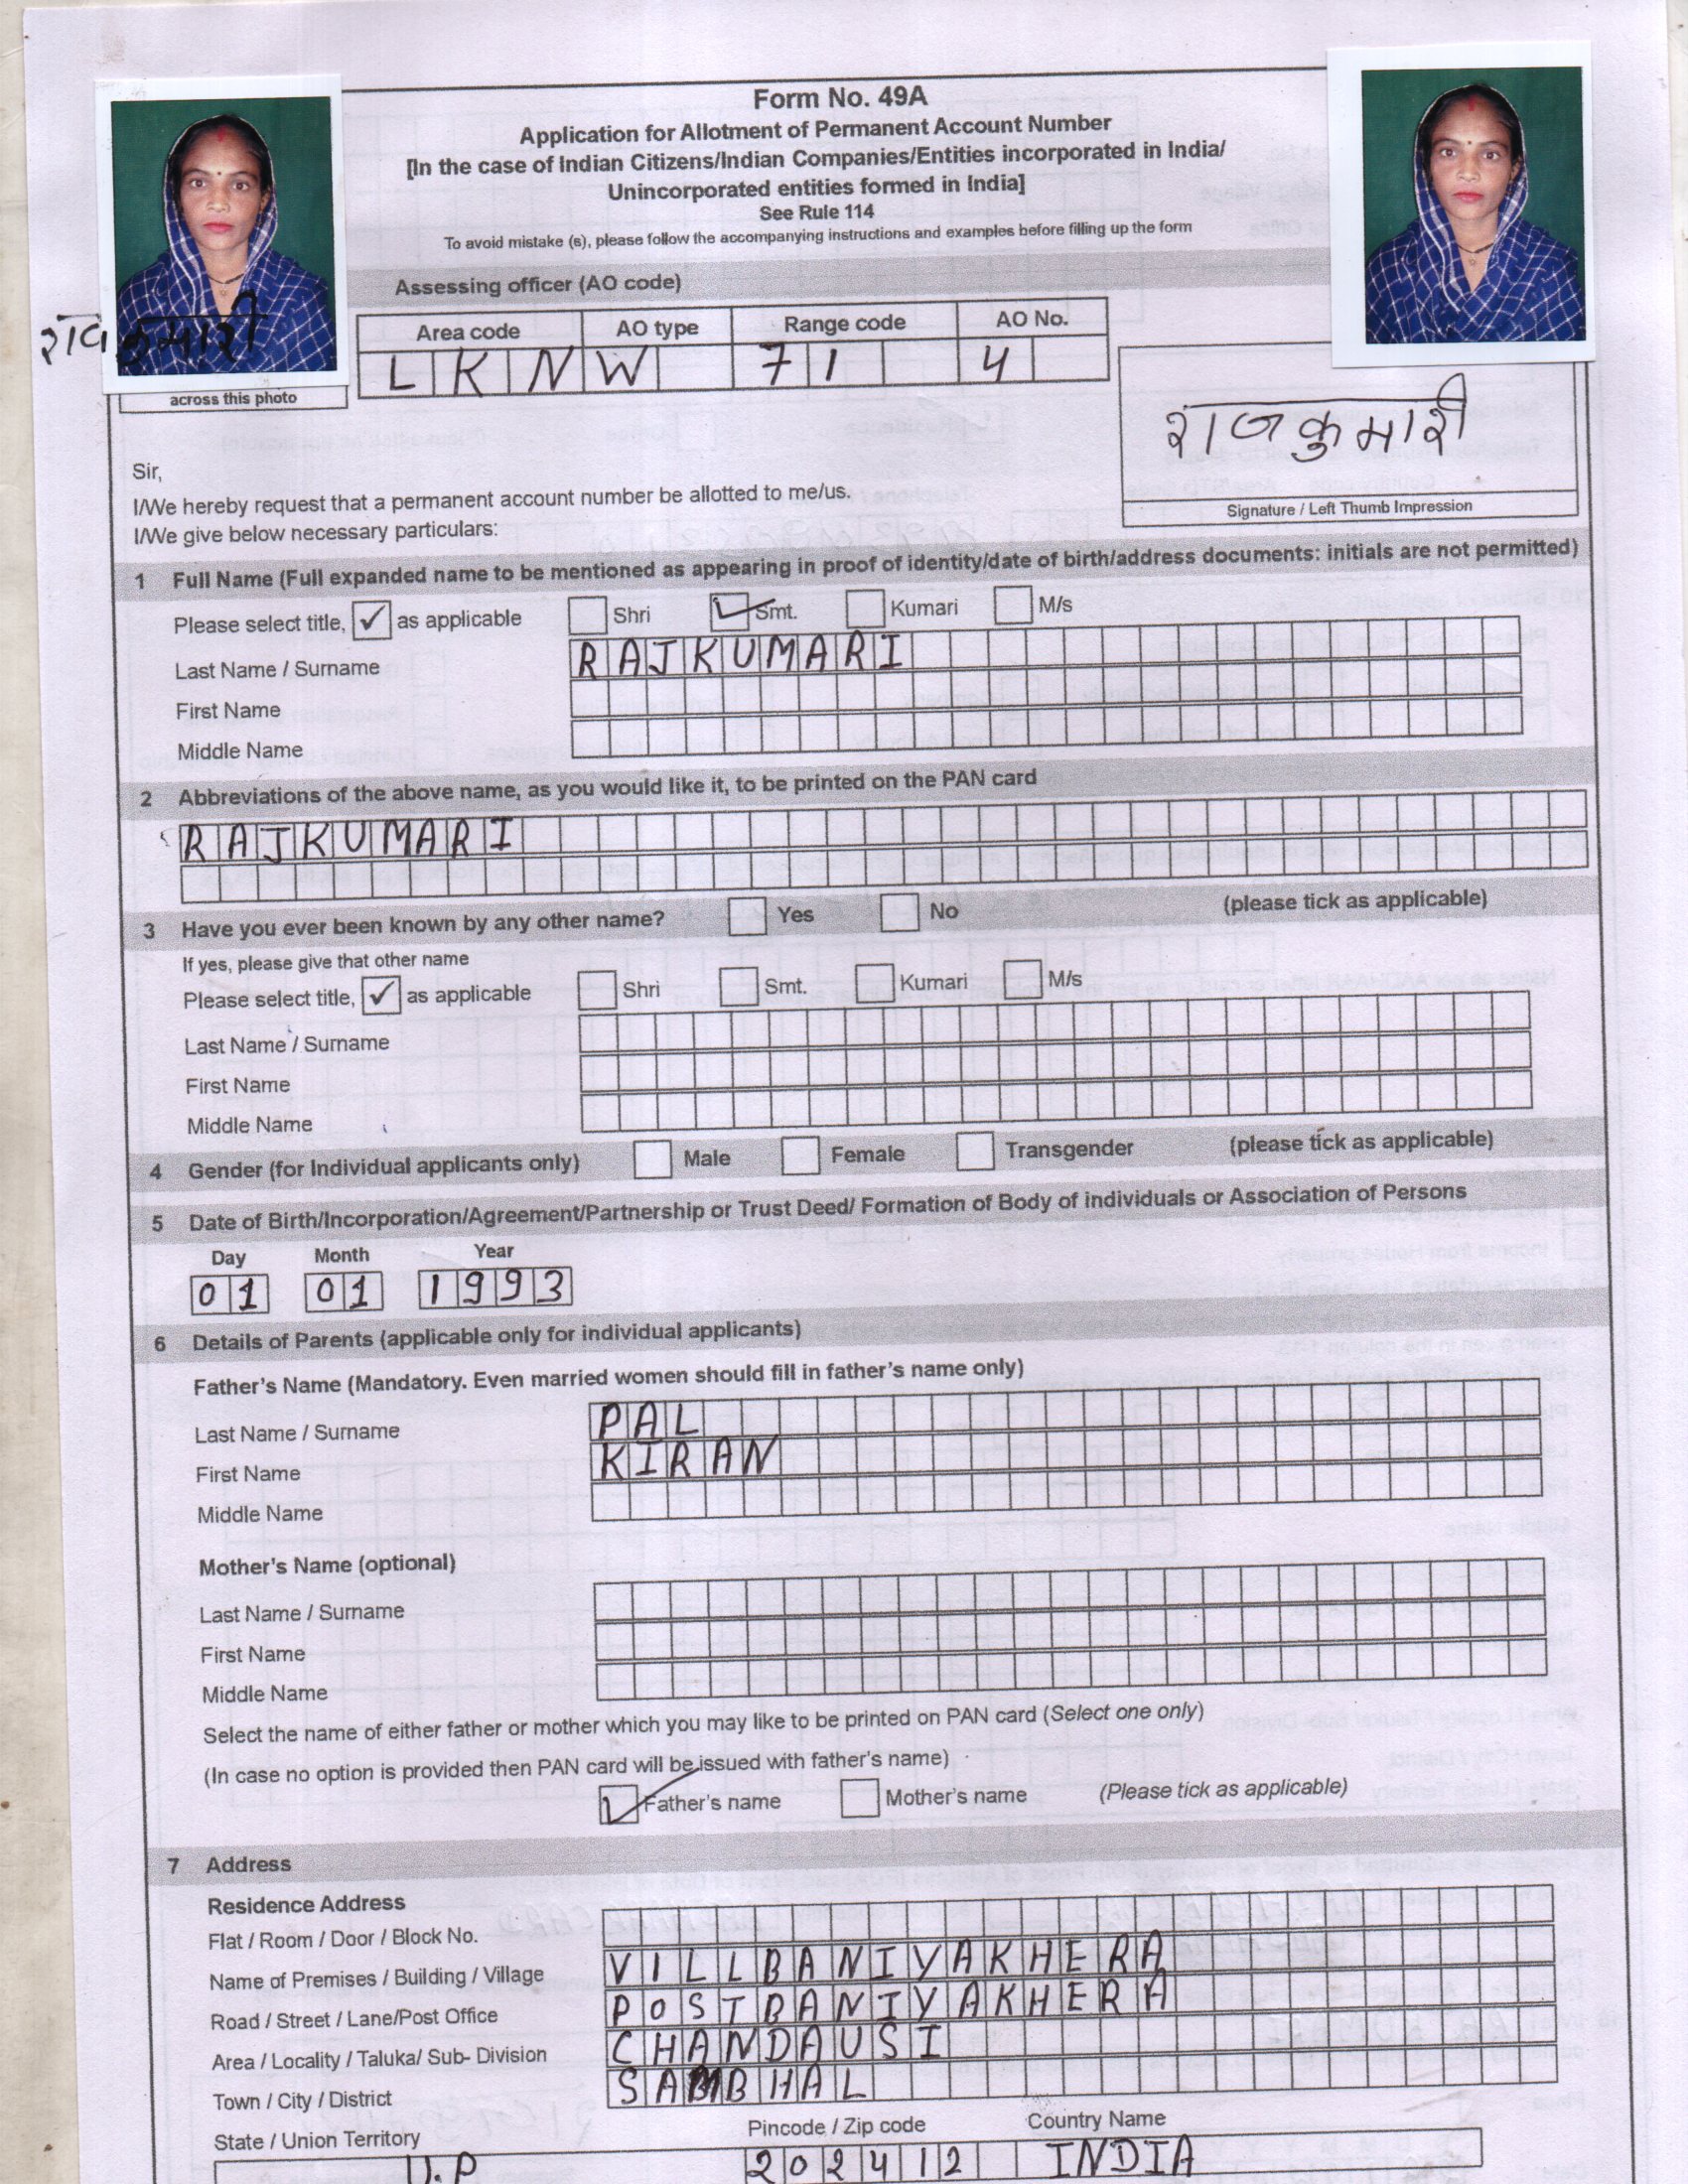 Form No. 49A
Application for Allotment of Permanent Account Number
[In the case of Indian Citizens/Indian Companies/Entities incorporated in India/
Unincorporated entities formed in India]
See Rule 114
To avoid mistake (s), please follow the accompanying instructions and examples before filling up the form
Assessing officer (AO code)
Area code AO type Range code AO No.
LKN W 71 4
राजकुमारी
across this photo
राजकुमारी
Signature / Left Thumb Impression
Sir,
I/We hereby request that a permanent account number be allotted to me/us.
I/We give below necessary particulars:
1 Full Name (Full expanded name to be mentioned as appearing in proof of identity/date of birth/address documents: initials are not permitted)
Please select title, ✓ as applicable Shri ✓ Smt. Kumari M/s
Last Name / Surname RAJKUMARI
First Name
Middle Name
2 Abbreviations of the above name, as you would like it, to be printed on the PAN card
RAJKUMARI
3 Have you ever been known by any other name? Yes No (please tick as applicable)
If yes, please give that other name
Please select title, ✓ as applicable Shri Smt. Kumari M/s
Last Name / Surname
First Name
Middle Name
4 Gender (for Individual applicants only) Male Female Transgender (please tick as applicable)
5 Date of Birth/Incorporation/Agreement/Partnership or Trust Deed/ Formation of Body of individuals or Association of Persons
Day Month Year
01 01 1993
6 Details of Parents (applicable only for individual applicants)
Father's Name (Mandatory. Even married women should fill in father's name only)
Last Name / Surname PAL
First Name KIRAN
Middle Name
Mother's Name (optional)
Last Name / Surname
First Name
Middle Name
Select the name of either father or mother which you may like to be printed on PAN card (Select one only)
(In case no option is provided then PAN card will be issued with father's name)
✓ Father's name Mother's name (Please tick as applicable)
7 Address
Residence Address
Flat / Room / Door / Block No.
Name of Premises / Building / Village VILLBANIYAKHERA
Road / Street / Lane/Post Office POSTBANIYAKHERA
Area / Locality / Taluka/ Sub- Division CHANDAUSI
Town / City / District SAMBHAL
State / Union Territory Pincode / Zip code Country Name
U.P 202412 INDIA